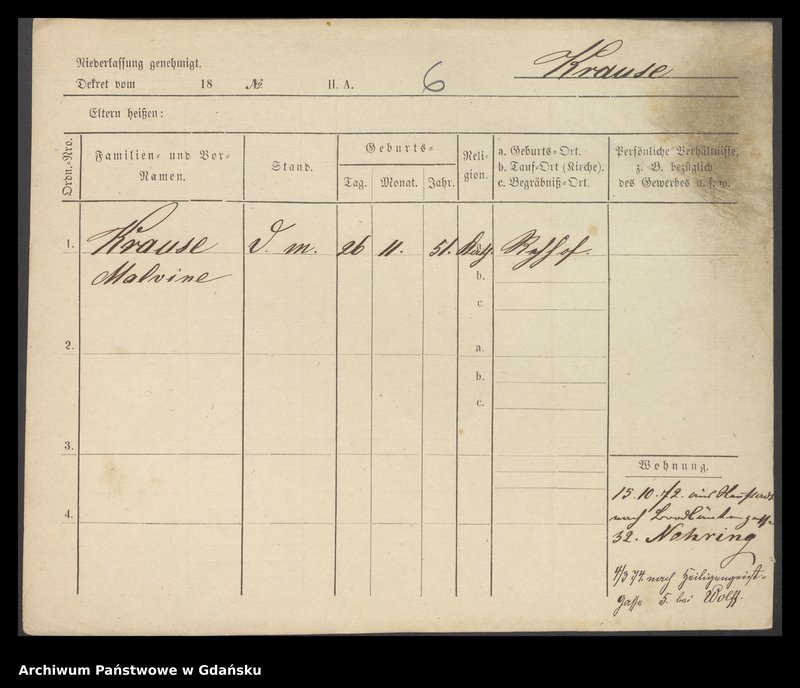 Niederlassung genehmigt.
Krause
Dekret vom 18 No. II. A. 6
Eltern heißen:
Ordn.-Nro.
Familien- und Vor-Namen.
Stand.
Geburts-
Tag. Monat. Jahr.
Reli-
gion.
a. Geburts-Ort.
b. Tauf-Ort (Kirche).
c. Begräbniß-Ort.
Persönliche Verhältnisse,
z. B. bezüglich
des Gewerbes u. s. w.
1. Krause D. m. 26 11. 51. Kath. a. Rehhof.
Malvine b.
c.
2. a.
b.
c.
3.
Wohnung.
15.10.72. aus Neustadt
4. nach Brodbänkengasse
32. Nehring
4/3 74. nach Heiligengeist-
gasse 5. bei Wolff.
Archiwum Państwowe w Gdańsku